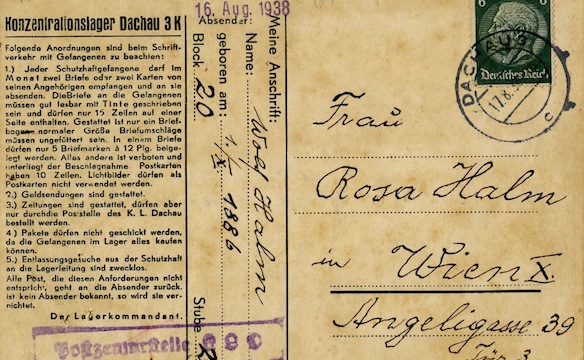 Konzentrationslager Dachau 3 K
Folgende Anordnungen sind beim Schrift-
verkehr mit Gefangenen zu beachten:
1.) Jeder Schutzhaftgefangene darf im
Monat zwei Briefe oder zwei Karten von
seinen Angehörigen empfangen und an sie
absenden. DieBriefe an die Gefangenen
müssen gut lesbar mit Tinte geschrieben
sein und dürfen nur 15 Zeilen auf einer
Seite enthalten. Gestattet ist nur ein Brief-
bogen normaler Größe Briefumschläge
müssen ungefüttert sein. In einem Briefe
dürfen nur 5 Briefmarken à 12 Pfg. beige-
legt werden. Alles andere ist verboten und
unterliegt der Beschlagnahme. Postkarten
haben 10 Zeilen. Lichtbilder dürfen als
Postkarten nicht verwendet werden.
2.) Geldsendungen sind gestattet.
3.) Zeitungen sind gestattet, dürfen aber
nur durchdie Poststelle des K. L. Dachau
bestellt werden.
4.) Pakete dürfen nicht geschickt werden,
da die Gefangenen im Lager alles kaufen
können.
5.) Entlassungsgesuche aus der Schutzhaft
an die Lagerleitung sind zwecklos.
Alle Post, die diesen Anforderungen nicht
entspricht, geht an die Absender zurück.
ist kein Absender bekannt, so wird sie ver-
nichtet.
Der Lagerkommandant.
Postzensurstelle
16. Aug. 1938
Meine Anschrift:
Absender:
Name: Wolf Halm
geboren am: 1./IX 1886
Block 20 Stube 2
6
Deutsches Reich
DACHAU
17.8.
c
Frau
Rosa Halm
in Wien X.
Angeligasse 39
Tür 3